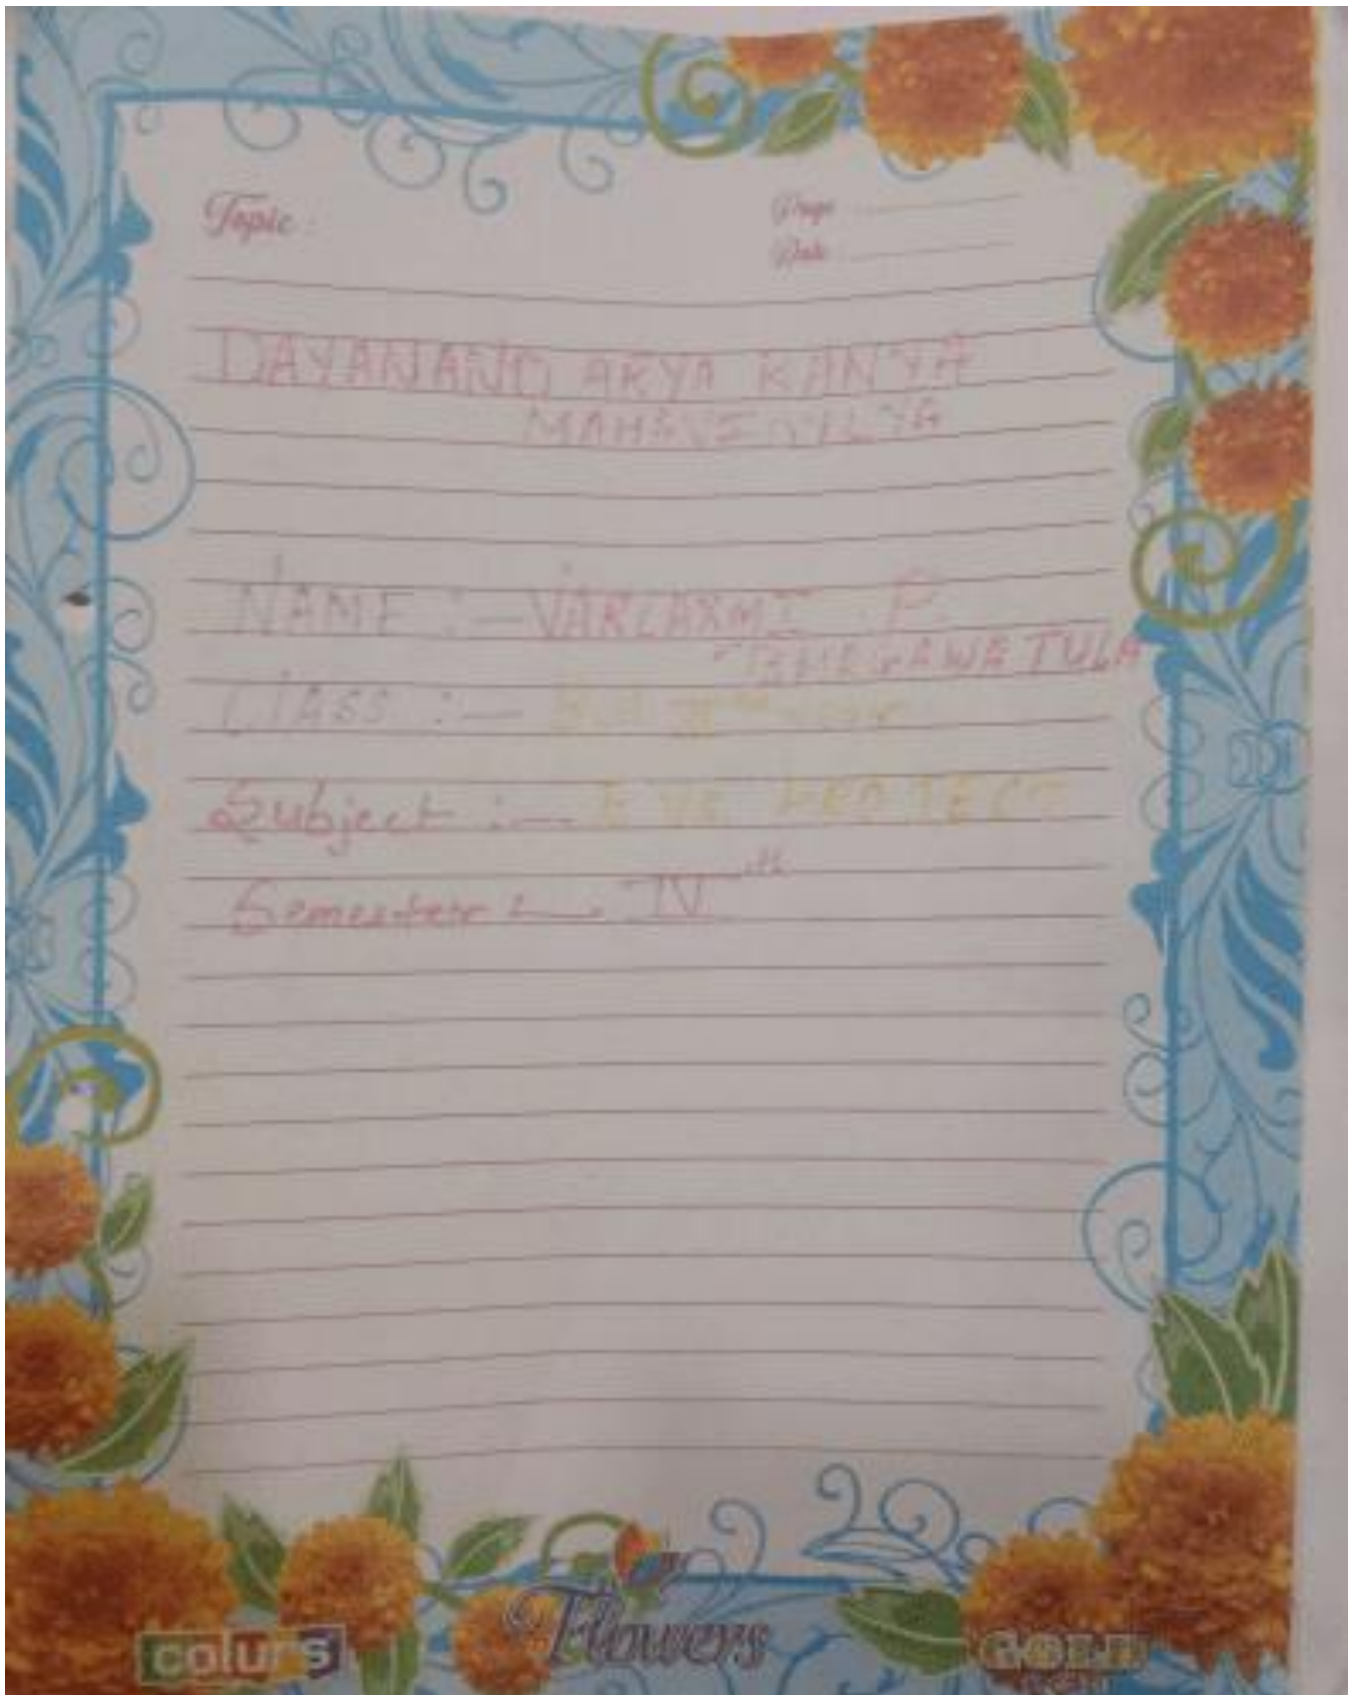 Topic :
Page
Date
DAYANAND ARYA KANYA
MAHAVIDYLYA
NAME :— VARLAXMI . P.
CLASS :— B.A IInd year
Subject :— EVS PROJECT
Semester :— IVth
colurs
Flowers
GOLD